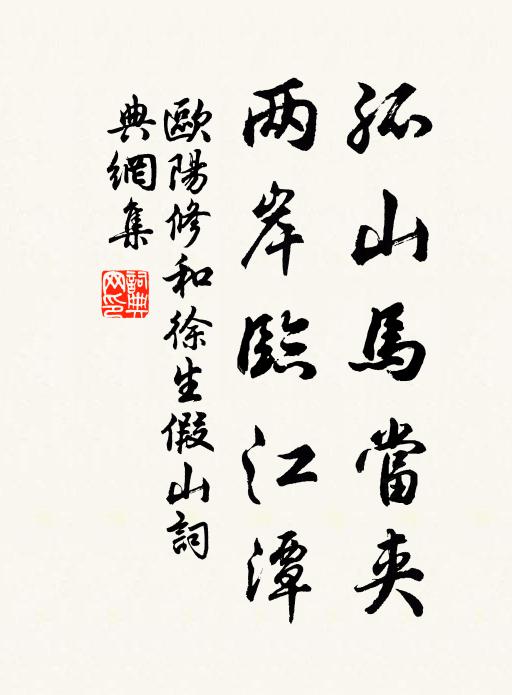 孤山馬當夾
两岸臨江潭
歐陽修和徐生假山詞
典網集
詞典网印